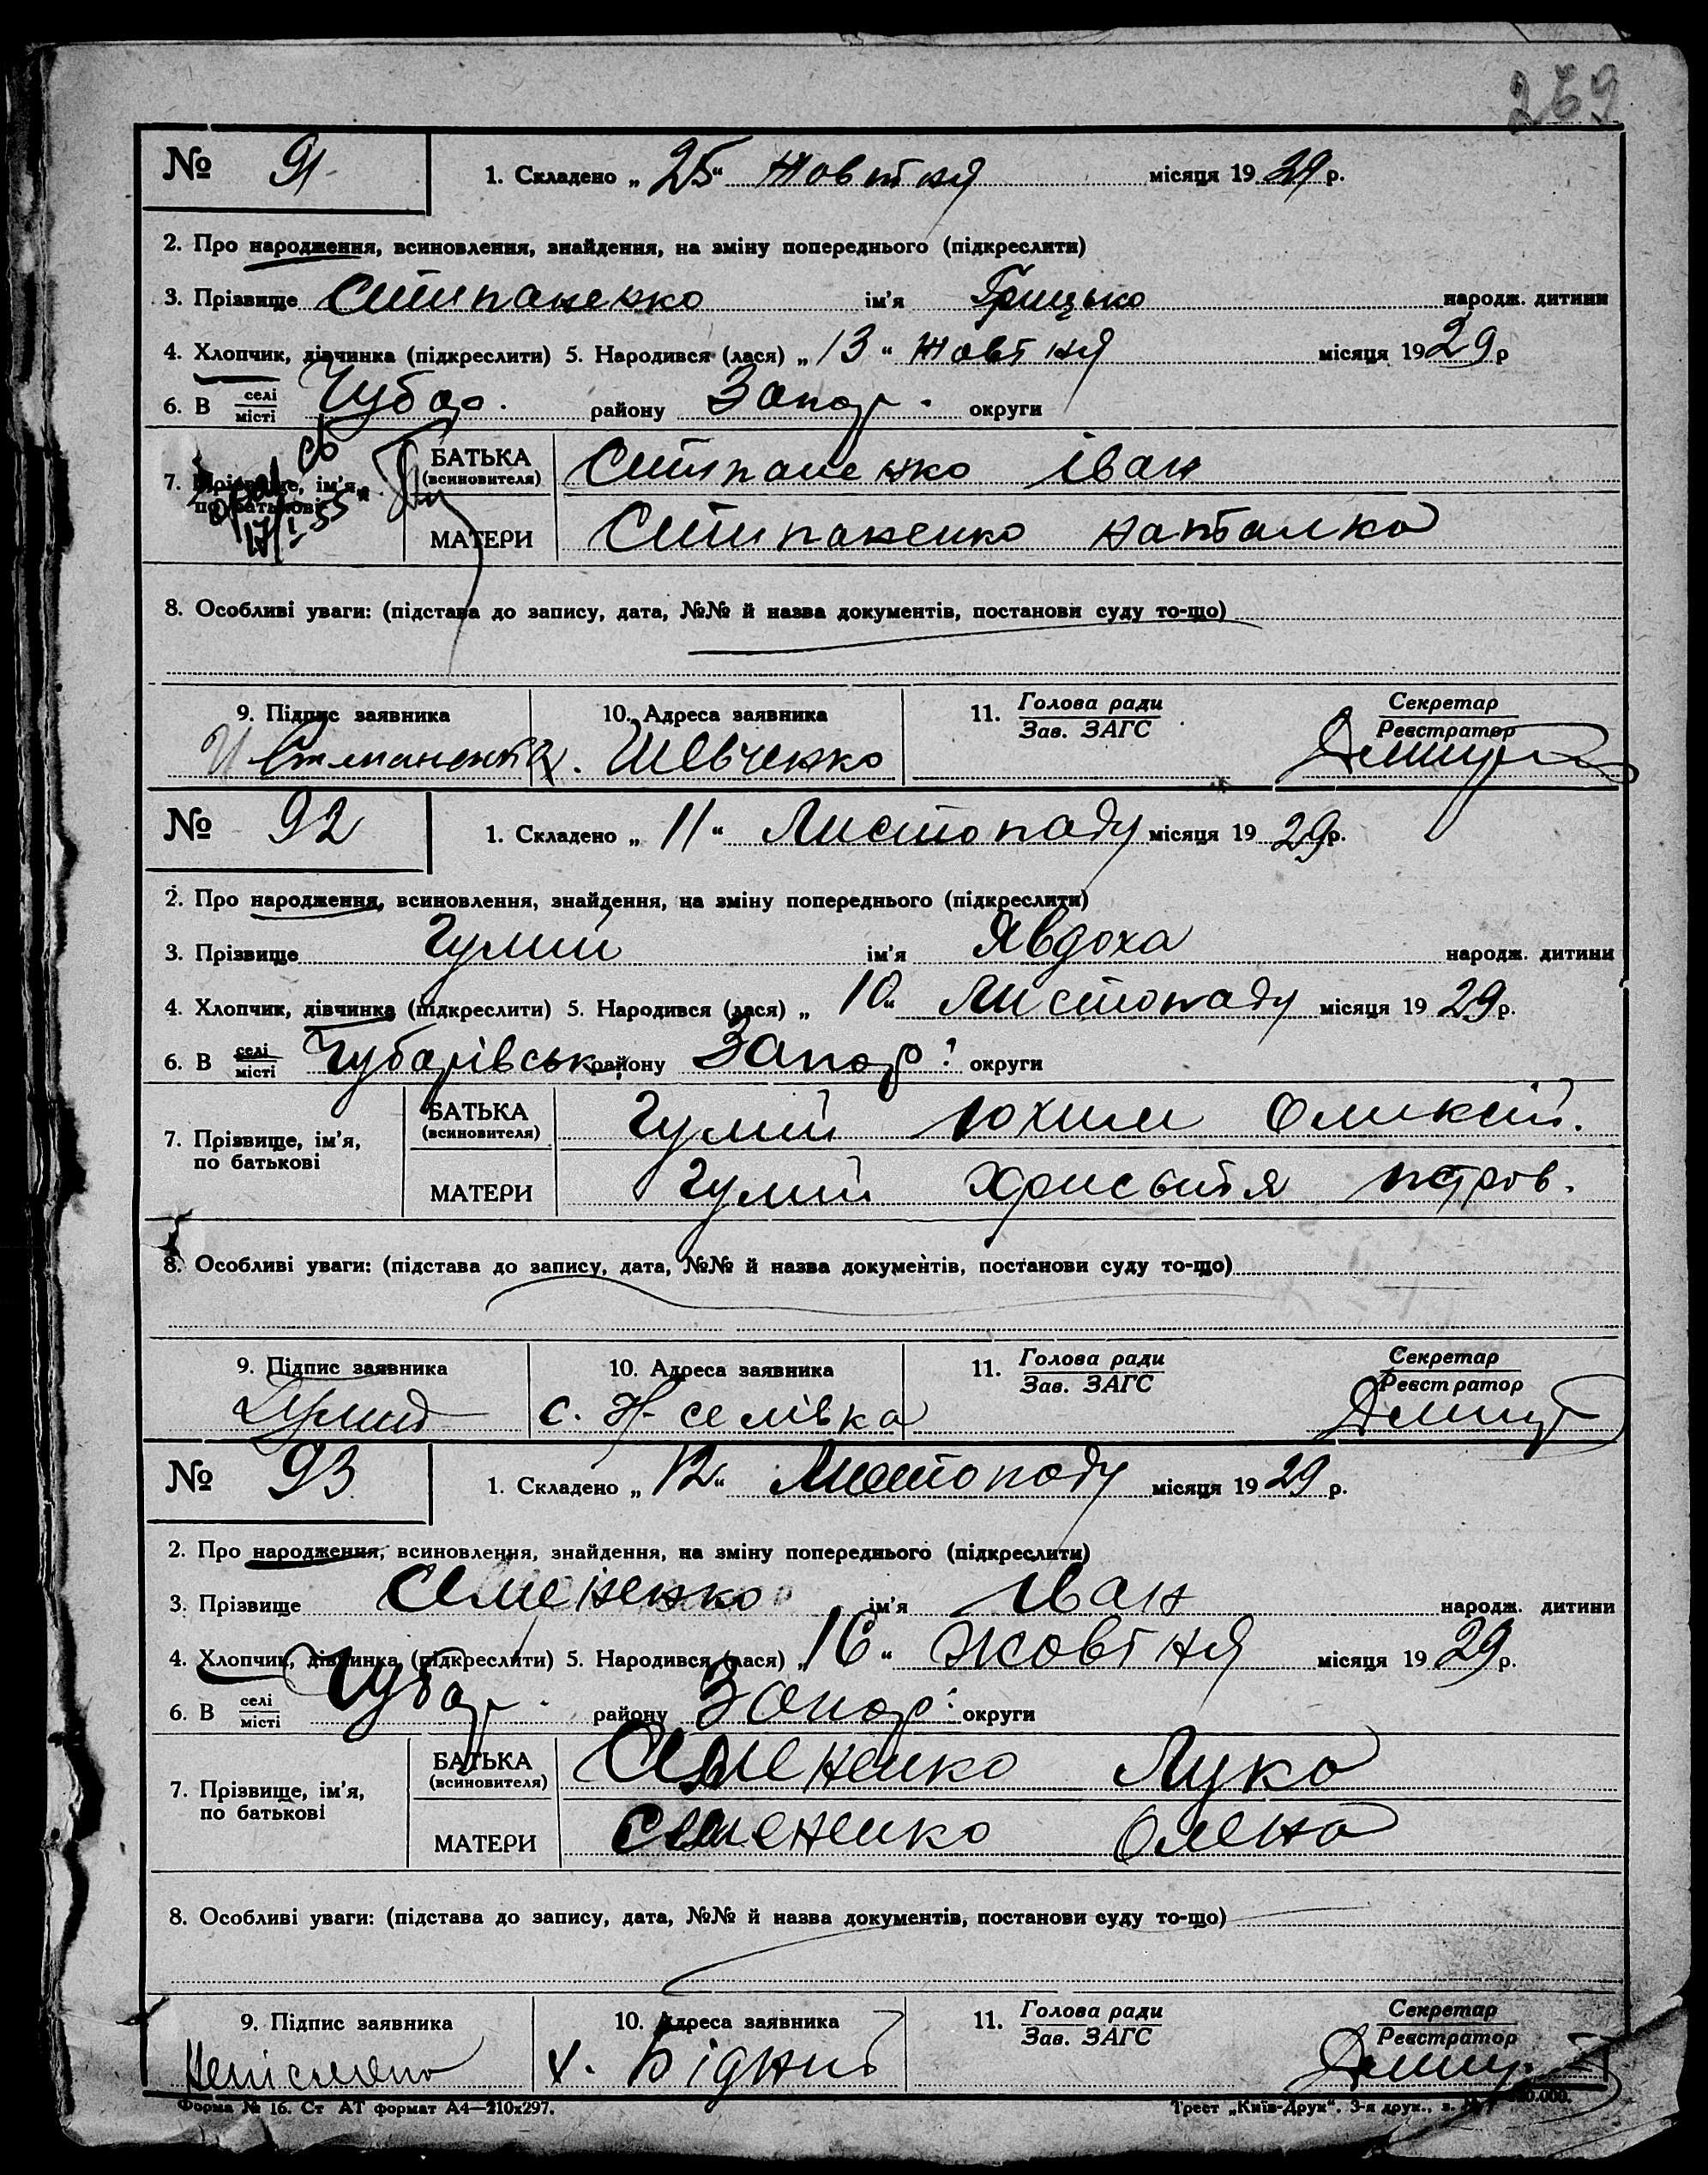 269
№ 91 1. Складено „25“ Жовтня місяця 1929 р.
2. Про народження, всиновлення, знайдення, на зміну попереднього (підкреслити)
3. Прізвище Стипаненко ім'я Грицько народж. дитини
4. Хлопчик, дівчинка (підкреслити) 5. Народився (лася) „13“ Жовтня місяця 1929 р
6. В селі місті Чубар. району Запор. округи
7. Прізвище, ім'я, по батькові
17/I-55
БАТЬКА (всиновителя) Стипаненко Іван
МАТЕРИ Стипаненко Наталка
8. Особливі уваги: (підстава до запису, дата, №№ й назва документів, постанови суду то-що)
9. Підпис заявника 10. Адреса заявника 11. Голова ради Зав. ЗАГС Секретар Реєстратор
х. Шевченко
№ 92 1. Складено „11“ Листопаду місяця 1929 р.
2. Про народження, всиновлення, знайдення, на зміну попереднього (підкреслити)
3. Прізвище Гумий ім'я Явдоха народж. дитини
4. Хлопчик, дівчинка (підкреслити) 5. Народився (лася) „10“ Листопаду місяця 1929 р.
6. В селі місті Чубарівськ. району Запор. округи
7. Прізвище, ім'я, по батькові
БАТЬКА (всиновителя) Гумий Юхим Оликсій.
МАТЕРИ Гумий Христья петров.
8. Особливі уваги: (підстава до запису, дата, №№ й назва документів, постанови суду то-що)
9. Підпис заявника 10. Адреса заявника 11. Голова ради Зав. ЗАГС Секретар Реєстратор
с. Н-селівка
№ 93 1. Складено „12“ Листопаду місяця 1929 р.
2. Про народження, всиновлення, знайдення, на зміну попереднього (підкреслити)
3. Прізвище Семененко ім'я Іван народж. дитини
4. Хлопчик, дівчинка (підкреслити) 5. Народився (лася) „16“ Жовтня місяця 1929 р.
6. В селі місті Чубар. району Запор. округи
7. Прізвище, ім'я, по батькові
БАТЬКА (всиновителя) Семененко Лука
МАТЕРИ Семененко Олена
8. Особливі уваги: (підстава до запису, дата, №№ й назва документів, постанови суду то-що)
9. Підпис заявника 10. Адреса заявника 11. Голова ради Зав. ЗАГС Секретар Реєстратор
Неписьмено х. Бідний
Форма № 16. Ст АТ формат А4—210х297. Трест „Київ-Друк“. 3-я друк., з.